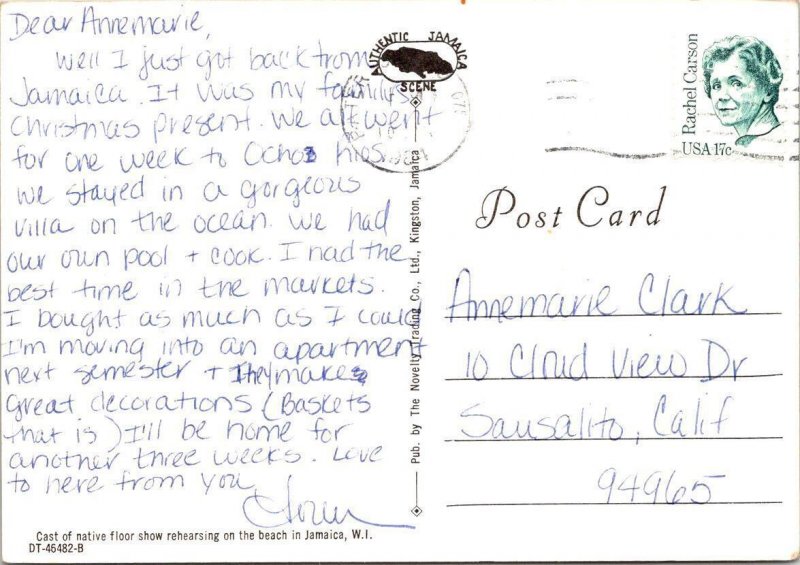 Dear Annemarie,
Well I just got back from
Jamaica. It was my family's
Christmas present. We all went
for one week to Ochos Rios.
We stayed in a gorgeous
villa on the ocean. We had
our own pool + cook. I had the
best time in the markets.
I bought as much as I could
I'm moving into an apartment
next semester + they make
great decorations (Baskets
that is) I'll be home for
another three weeks. Love
to here from you
Cast of native floor show rehearsing on the beach in Jamaica, W.I.
DT-46482-B
AUTHENTIC JAMAICA
SCENE
Pub. by The Novelty Trading Co., Ltd., Kingston, Jamaica
Rachel Carson
USA 17c
Post Card
Annemarie Clark
10 Cloud View Dr
Sausalito, Calif
94965